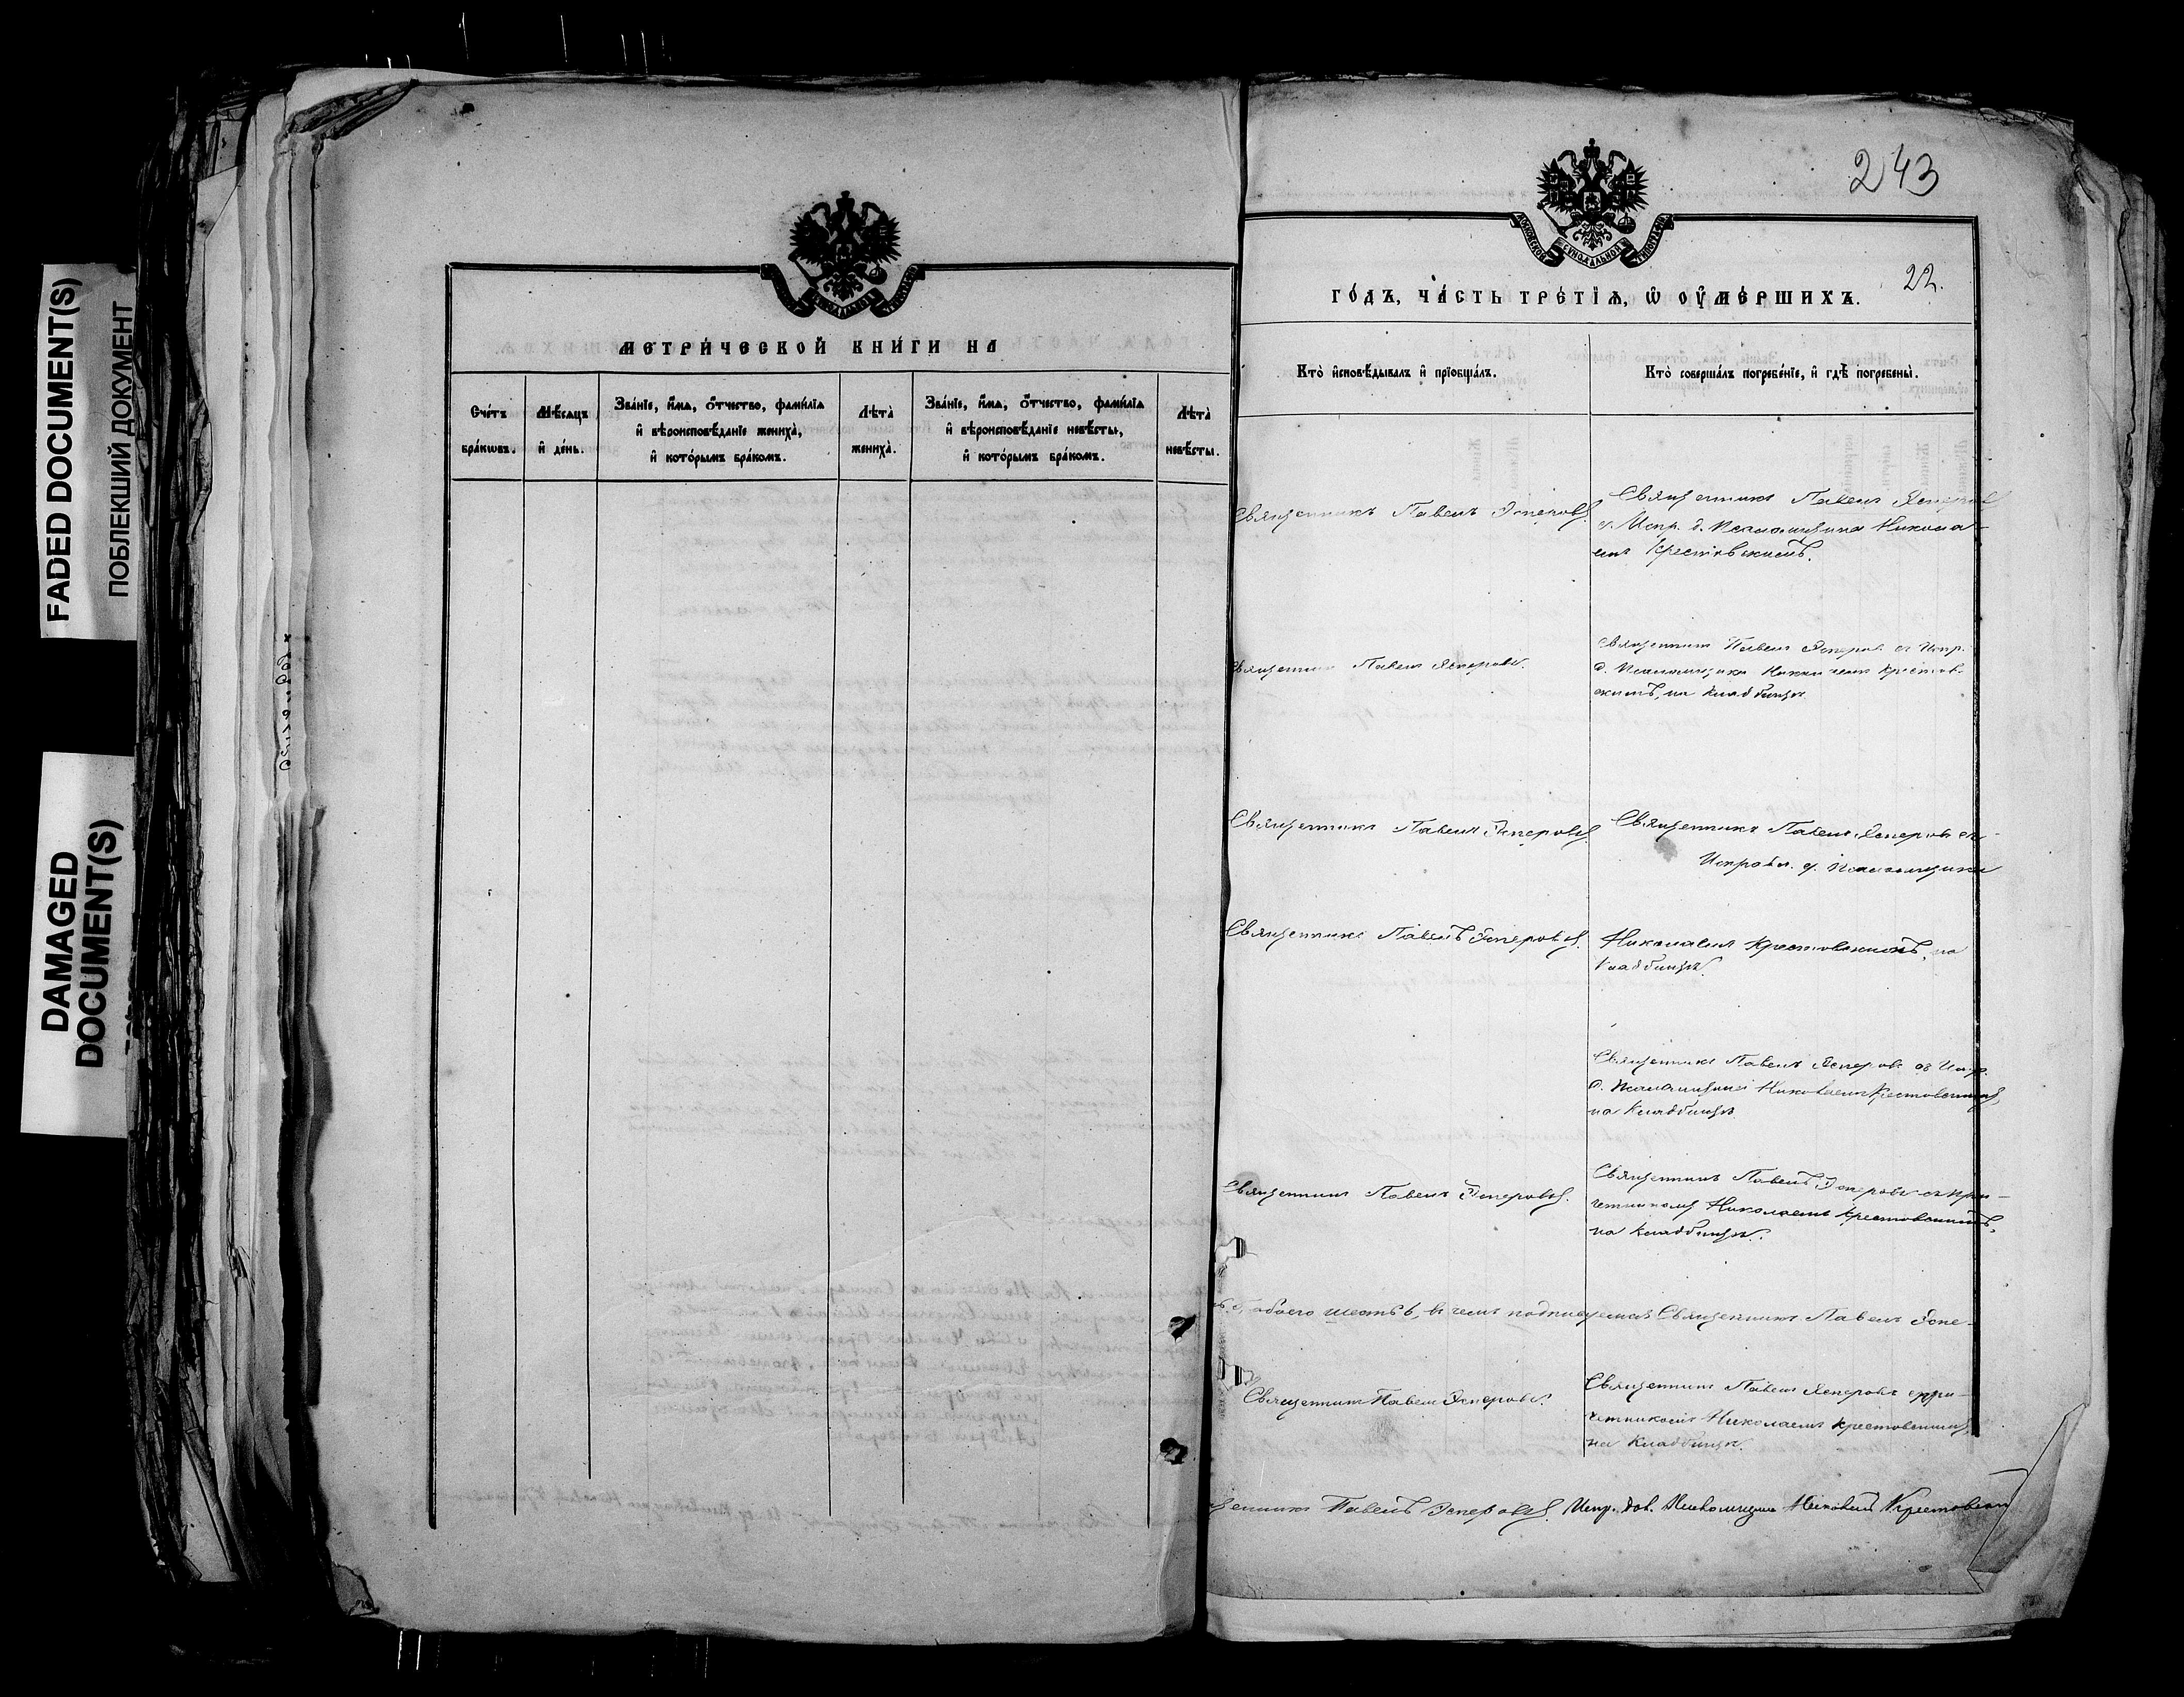 FADED DOCUMENT(S)
ПОБЛЕКШИЙ ДОКУМЕНТ
DAMAGED
DOCUMENT(S)
МЕТРИ́ЧЕСКОЙ КНИ́ГИ НА
Сче́тъ бра́кѡвъ.
Мѣ́сѧцъ и҆ де́нь.
Зва́нїе, и҆́мѧ, ѻ҆́тчество, фами́лїѧ и҆ вѣроисповѣ́данїе жениха̀, и҆ кото́рымъ бра́комъ.
Лѣта̀ жениха̀.
Зва́нїе, и҆́мѧ, ѻ҆́тчество, фами́лїѧ и҆ вѣроисповѣ́данїе невѣ́сты, и҆ кото́рымъ бра́комъ.
Лѣта̀ невѣ́сты.
243
МОСКОВСКОЙ СѴНОДАЛЬНОЙ ТИПОГРАФІИ
22.
ГО́ДЪ, ЧА́СТЬ ТРЕ́ТІѦ, Ѡ҆ ОУ҆МЕ́РШИХЪ.
Кто̀ и҆сповѣ́дывалъ и҆ прїобща́лъ.
Кто̀ соверша́лъ погребе́нїе, и҆ гдѣ̀ погребены̀.
Священникъ Павелъ Эсперовъ.
Священникъ Павелъ Эсперовъ
с. Испр. д. Псаломщика Никола-
емъ Крестовскимъ.
Священник Павелъ Эсперовъ.
Священник Павелъ Эсперов съ Испр.
д. Псаломщика Николаемъ Крестов-
скимъ, на кладбищѣ.
Священникъ Павелъ Эсперовъ.
Священникъ Павелъ Эсперов съ
Исправл. д. Псаломщика
Священникъ Павелъ Эсперовъ.
Николаемъ Крестовскимъ, на
кладбищѣ.
Священникъ Павелъ Эсперов съ Испр.
д. Псаломщика Николаемъ Крестовскимъ,
на кладбищѣ
Священникъ Павелъ Эсперовъ.
Священникъ Павелъ Эсперовъ съ при-
четникомъ Николаемъ Крестовскимъ,
на кладбищѣ.
обоего шесть 6, въ чемъ подписуемся Священникъ Павелъ Эспе-
Священник Павелъ Эсперовъ.
Священник Павелъ Эсперовъ с при-
четникомъ Николаемъ Крестовскимъ,
на кладбищѣ.
щенникъ Павелъ Эсперовъ. Испр. дол. Псаломщика Николай Крестовский